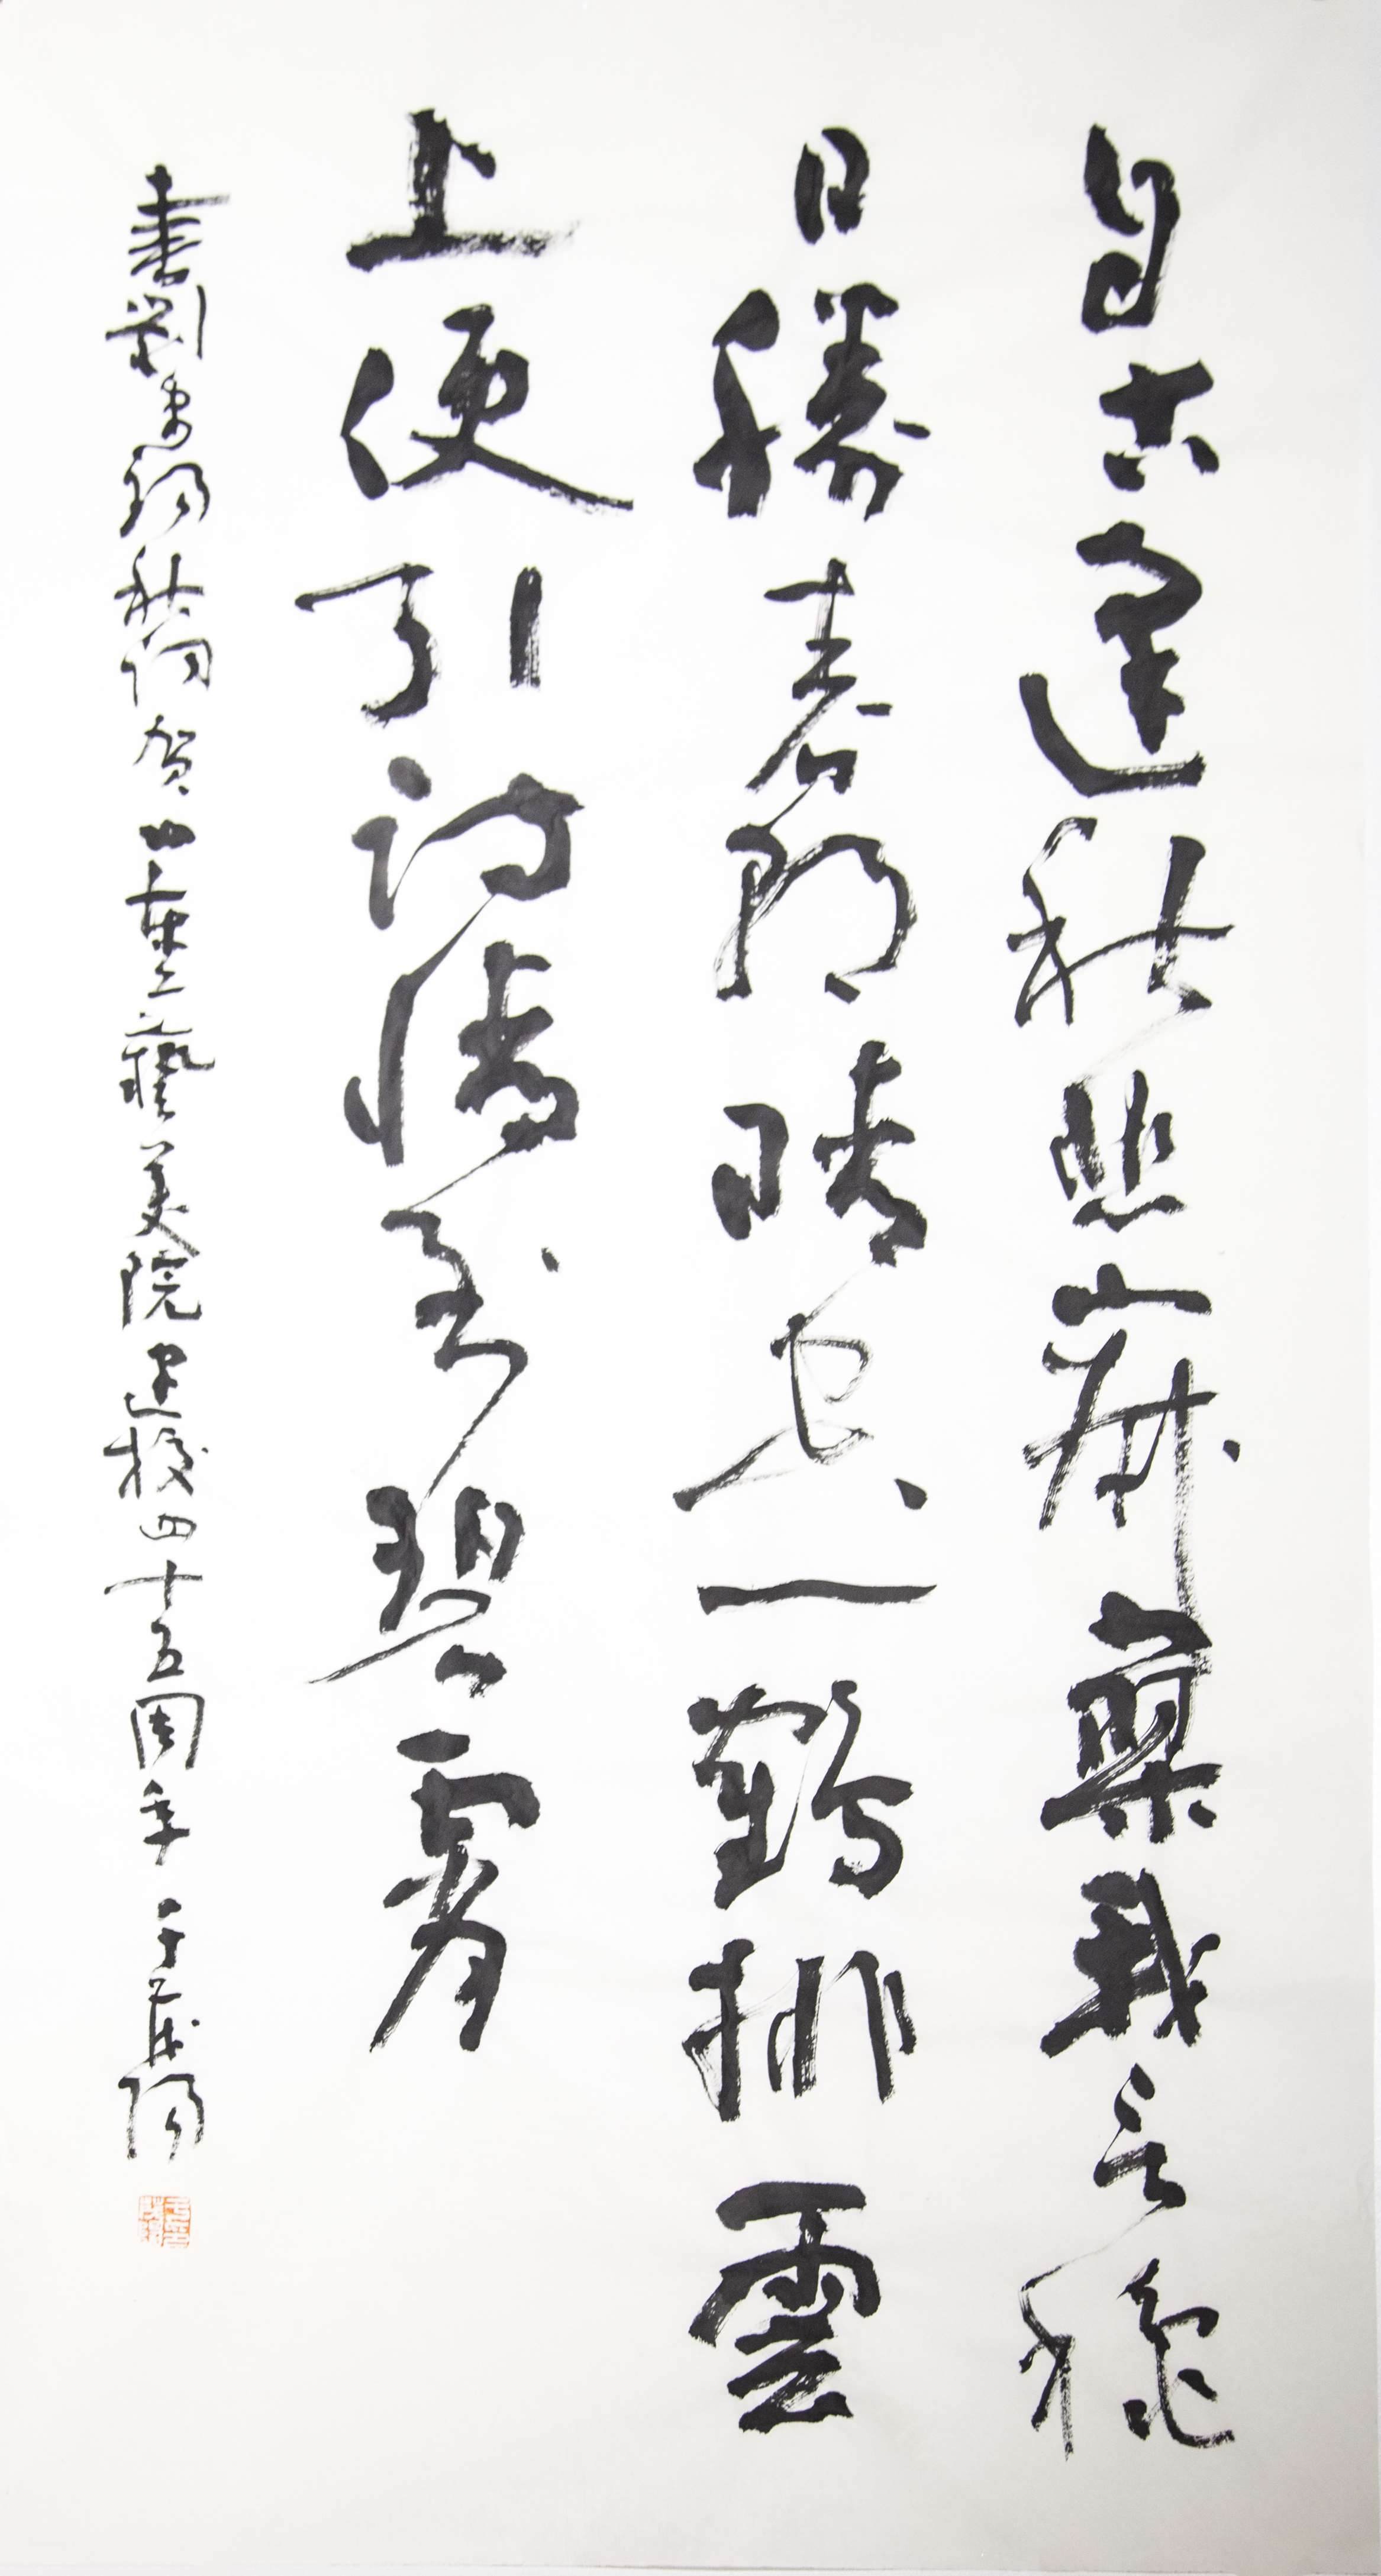 自古逢秋悲寂寥我言穐
日勝春朝晴空一鶴排雲
上便引詩情到碧霄
書劉禹錫秋词贺山東工藝美院建校四十五周年 于茂陽